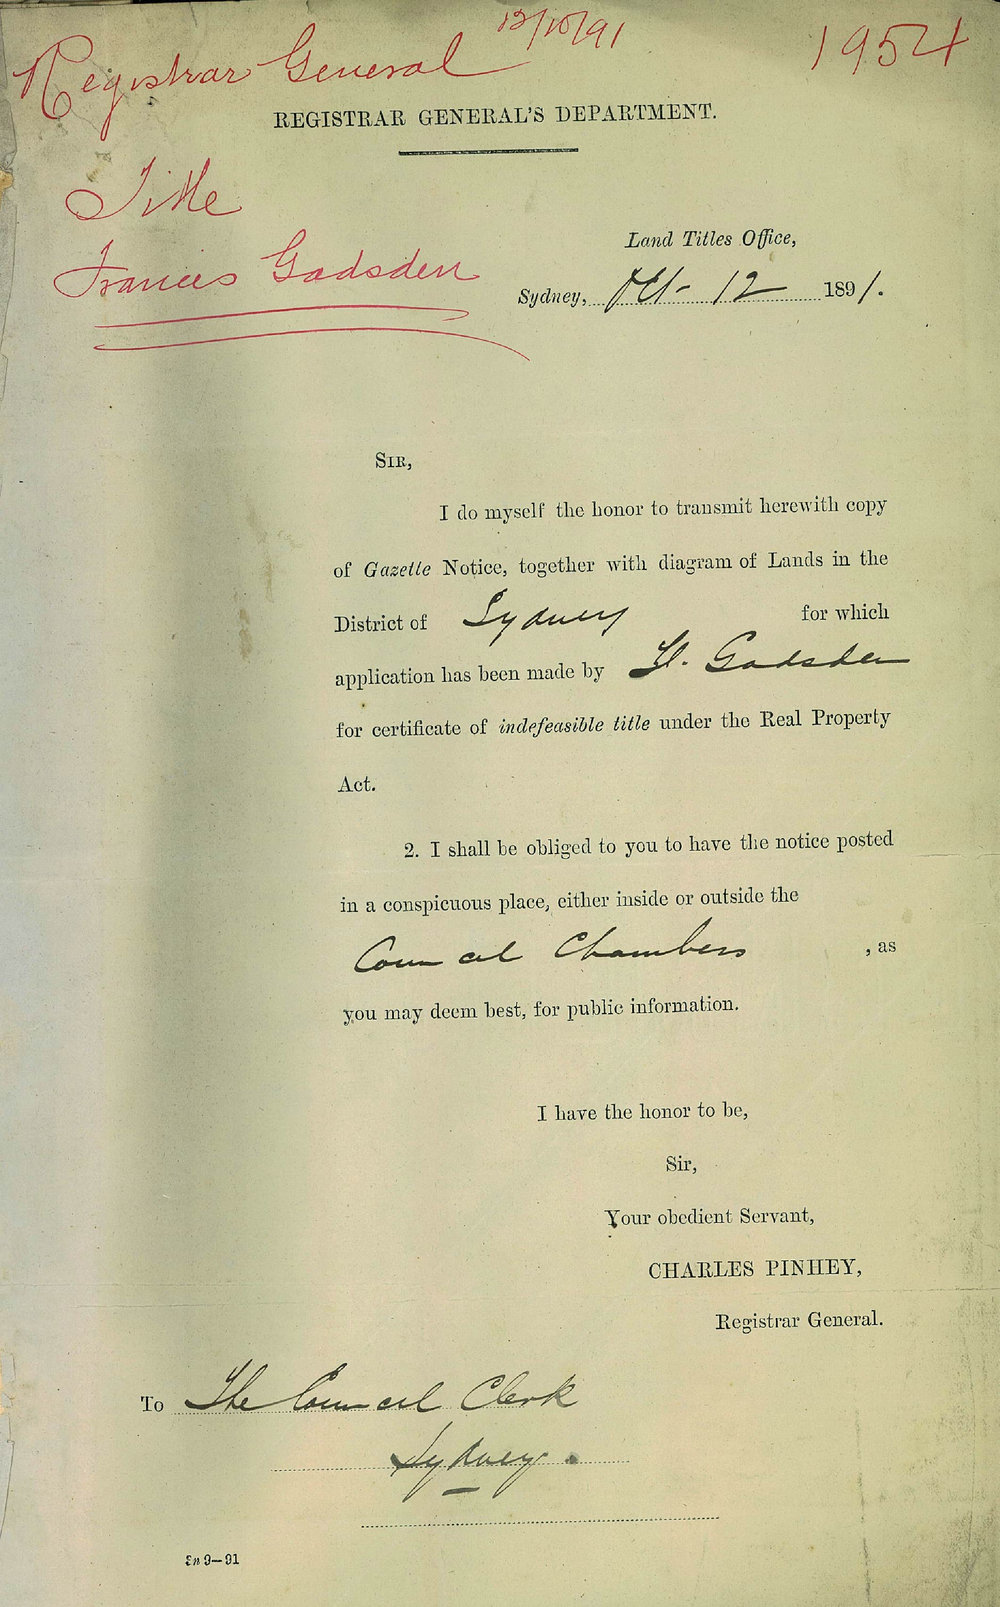 Registrar General 13/10/91 1954
REGISTRAR GENERAL'S DEPARTMENT.
Title
Frances Gadsden
Land Titles Office,
Sydney, Oct- 12 1891.
SIR,
I do myself the honor to transmit herewith copy
of Gazette Notice, together with diagram of Lands in the
District of Sydney for which
application has been made by F. Gadsden
for certificate of indefeasible title under the Real Property
Act.
2. I shall be obliged to you to have the notice posted
in a conspicuous place, either inside or outside the
Council Chambers , as
you may deem best, for public information.
I have the honor to be,
Sir,
Your obedient Servant,
CHARLES PINHEY,
Registrar General.
To The Council Clerk
Sydney.
9—91